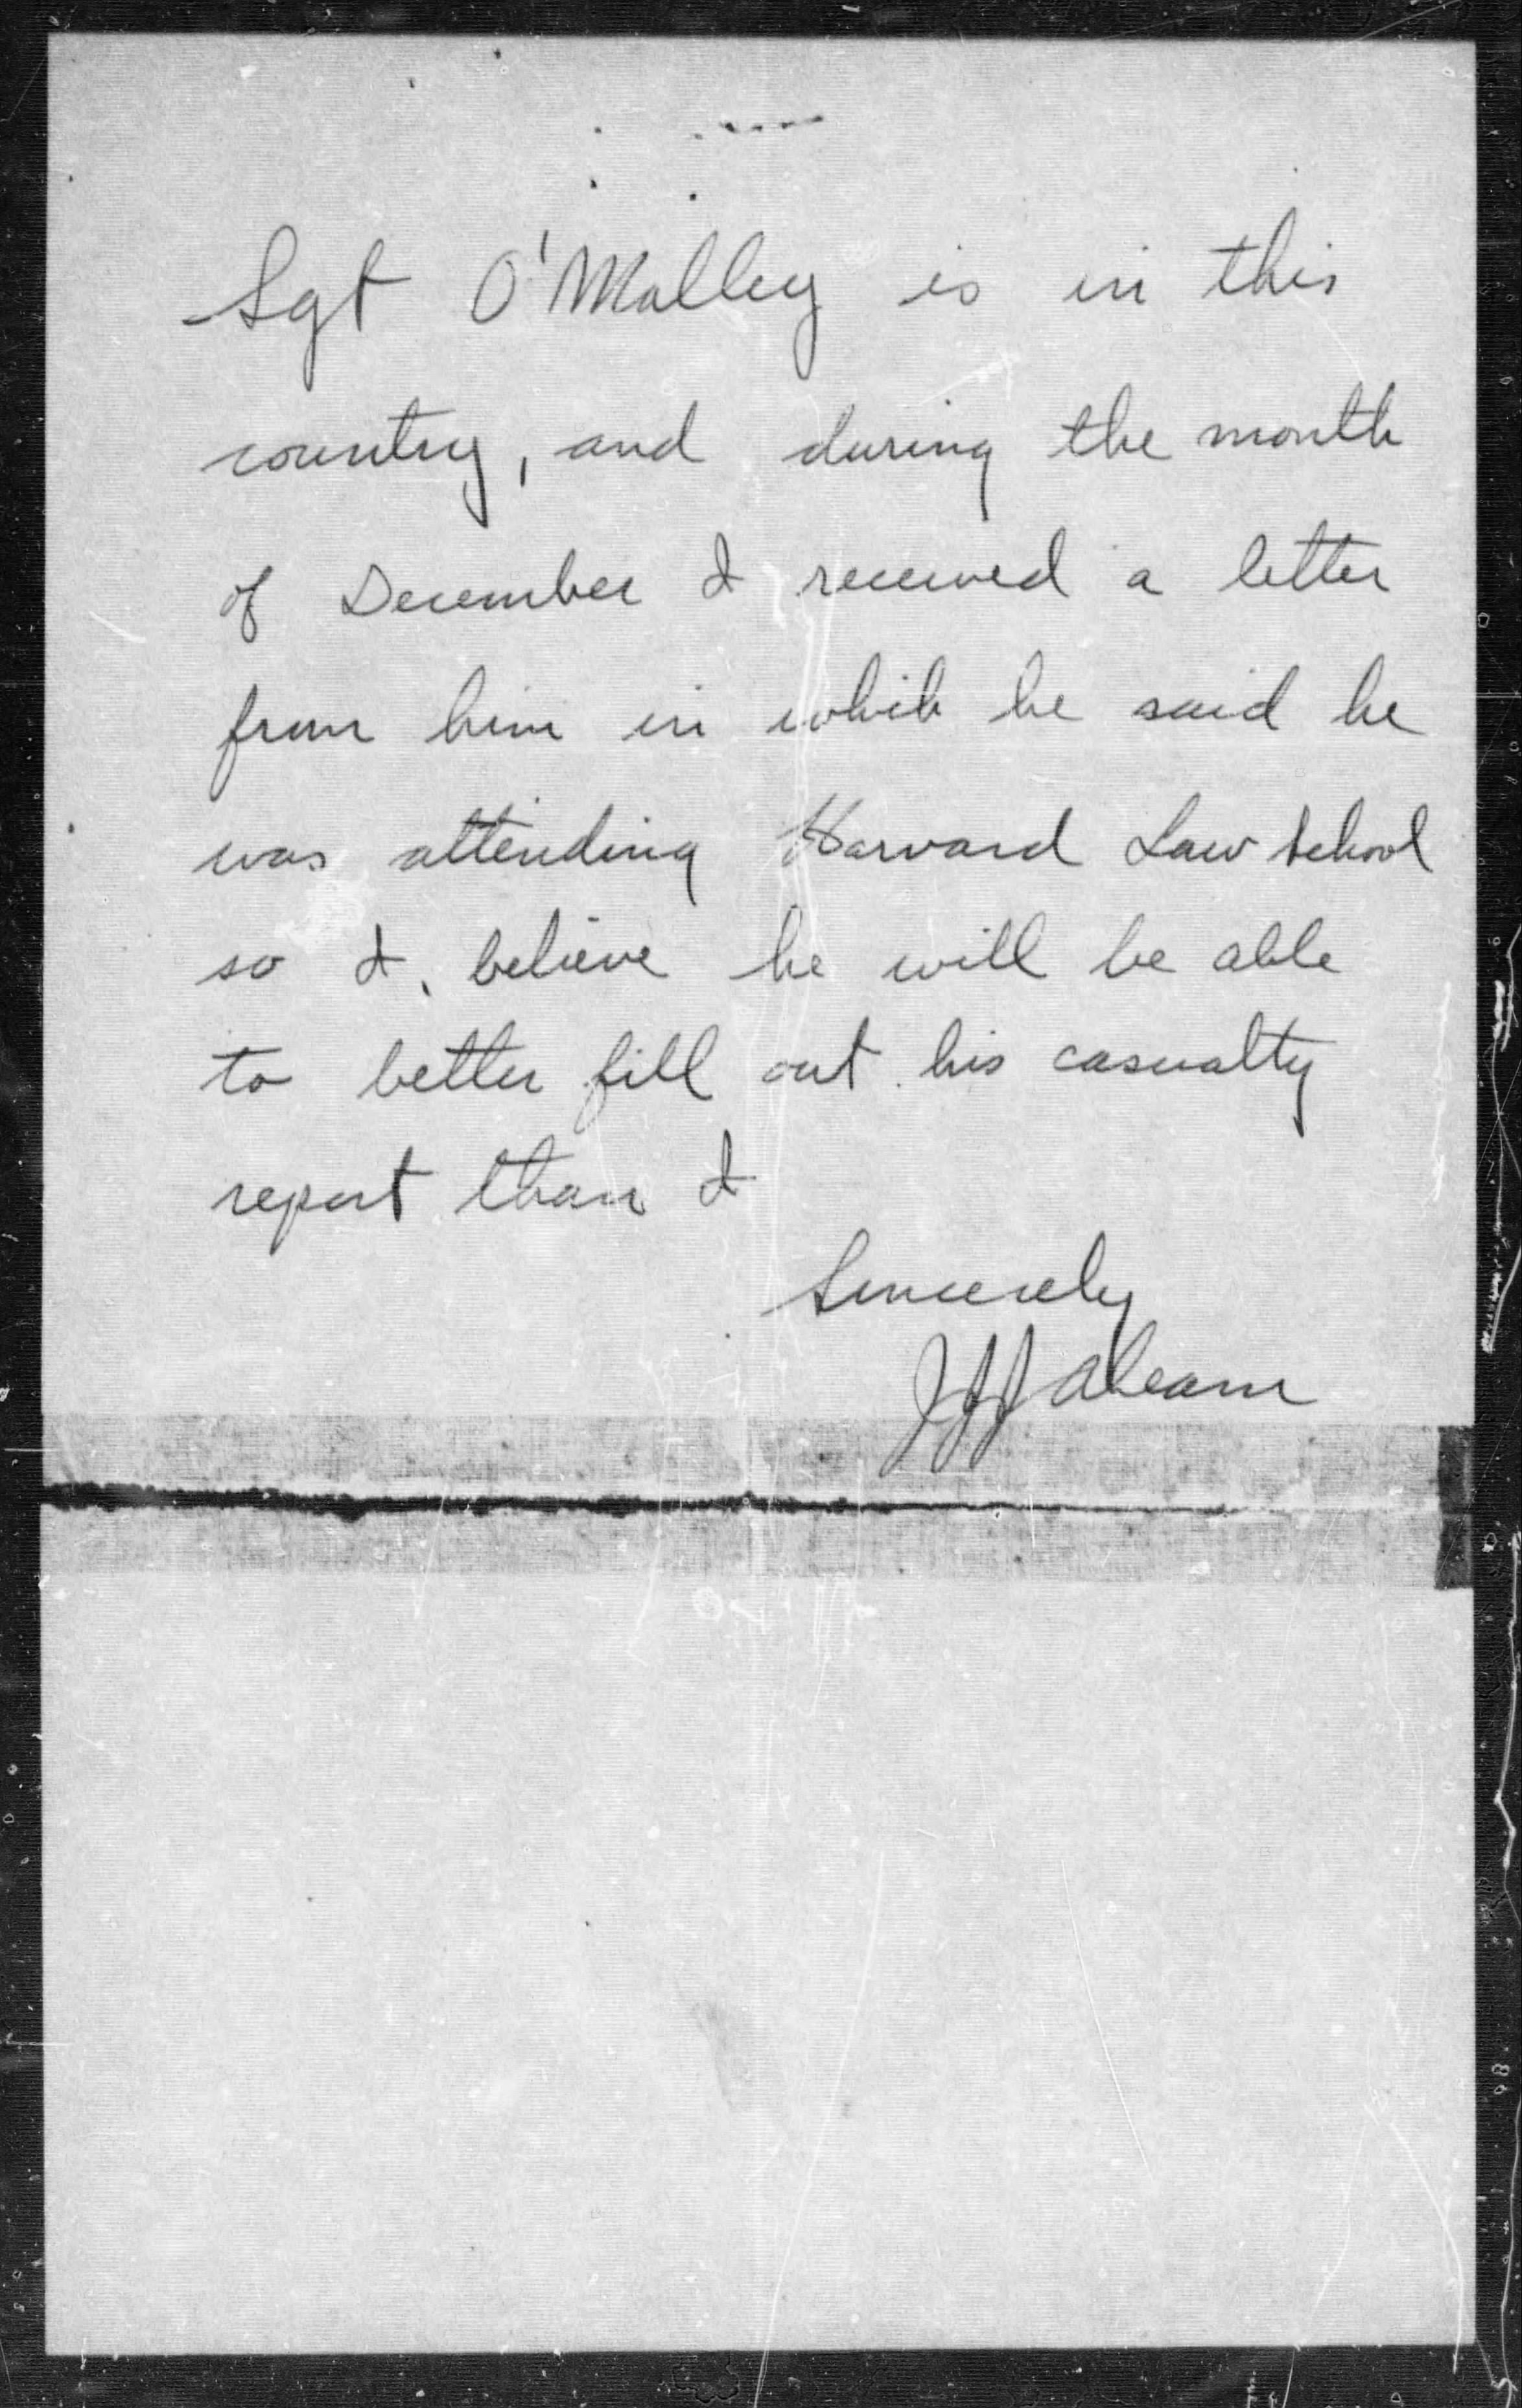 Sgt O'Malley is in this
country, and during the month
of December I received a letter
from him in which he said he
was attending Harvard Law School
so I, believe he will be able
to better fill out his casualty
report than I
Sincerely